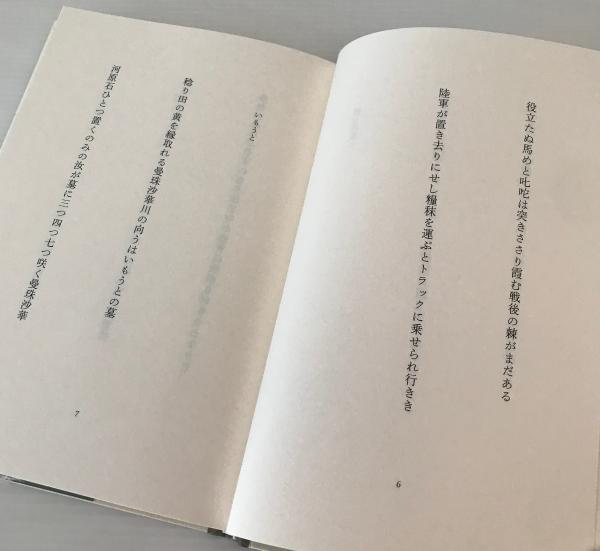 役立たぬ馬めと叱咤は突きささり霞む戦後の棘がまだある
陸軍が置き去りにせし糧秣を運ぶとトラックに乗せられ行きき
6
いもうと
稔り田の黄を縁取れる曼珠沙華川の向うはいもうとの墓
河原石ひとつ置くのみの汝が墓に三つ四つ七つ咲く曼珠沙華
7